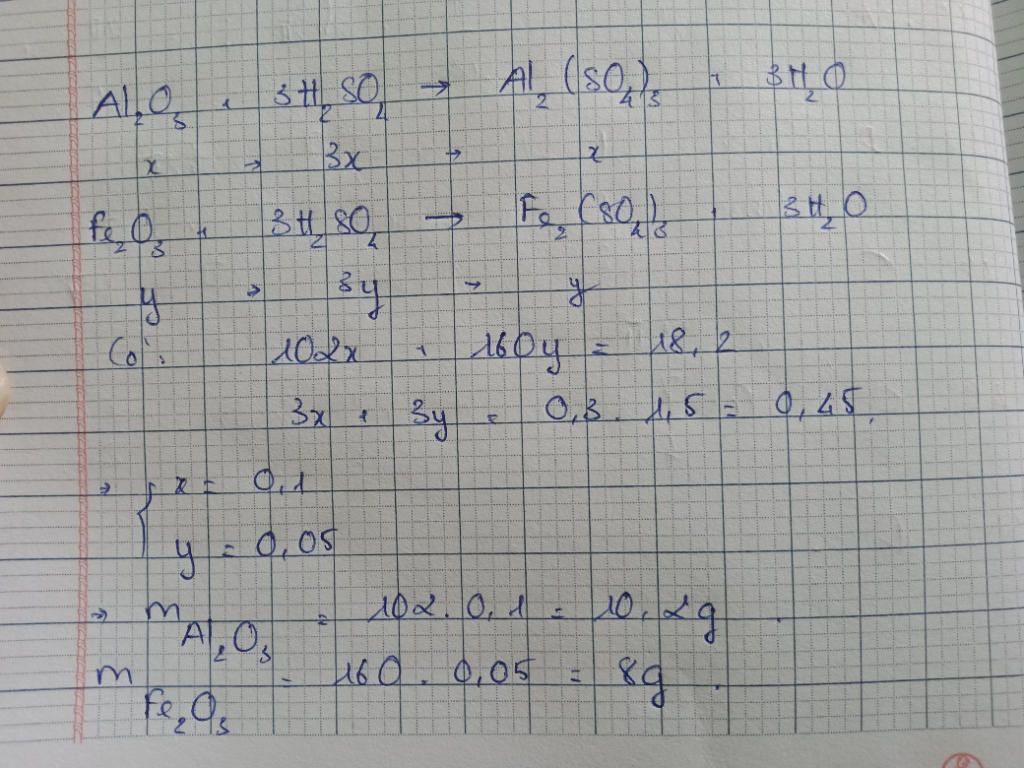 Al₂O₃ + 3H₂SO₄ → Al₂(SO₄)₃ + 3H₂O
x → 3x → x
Fe₂O₃ + 3H₂SO₄ → Fe₂(SO₄)₃ + 3H₂O
y → 3y → y
Có: 102x + 160y = 18,2
3x + 3y = 0,3 . 1,5 = 0,45.
→ { x = 0,1
y = 0,05
→ m Al₂O₃ = 102 . 0,1 = 10,2g .
m Fe₂O₃ = 160 . 0,05 = 8g .